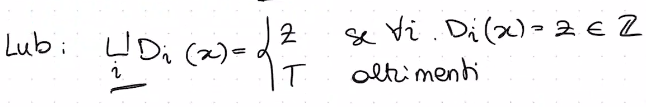 Lub: ⊔ᵢ Dᵢ (x) = { z se ∀i . Dᵢ(x) = z ∈ ℤ
T altrimenti